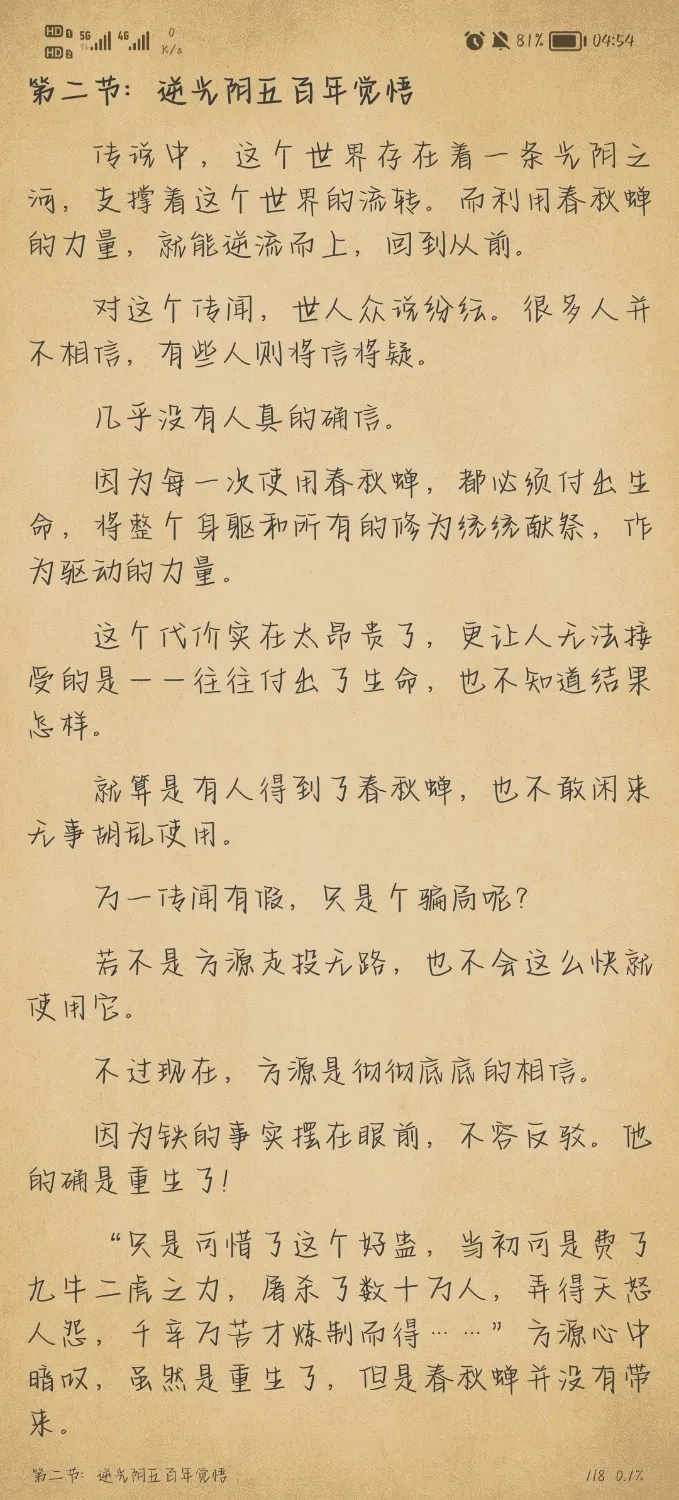 HD 1 5G 4G 0 81% 04:54
HD 2 K/s
第二节：逆光阴五百年觉悟
传说中，这个世界存在着一条光阴之
河，支撑着这个世界的流转。而利用春秋蝉
的力量，就能逆流而上，回到从前。
对这个传闻，世人众说纷纭。很多人并
不相信，有些人则将信将疑。
几乎没有人真的确信。
因为每一次使用春秋蝉，都必须付出生
命，将整个身躯和所有的修为统统献祭，作
为驱动的力量。
这个代价实在太昂贵了，更让人无法接
受的是——往往付出了生命，也不知道结果
怎样。
就算是有人得到了春秋蝉，也不敢闲来
无事胡乱使用。
万一传闻有假，只是个骗局呢？
若不是方源走投无路，也不会这么快就
使用它。
不过现在，方源是彻彻底底的相信。
因为铁的事实摆在眼前，不容反驳。他
的确是重生了！
“只是可惜了这个好蛊，当初可是费了
九牛二虎之力，屠杀了数十万人，弄得天怒
人怨，千辛万苦才炼制而得……”方源心中
暗叹，虽然是重生了，但是春秋蝉并没有带
来。
第二节：逆光阴五百年觉悟 1/8 0.1%